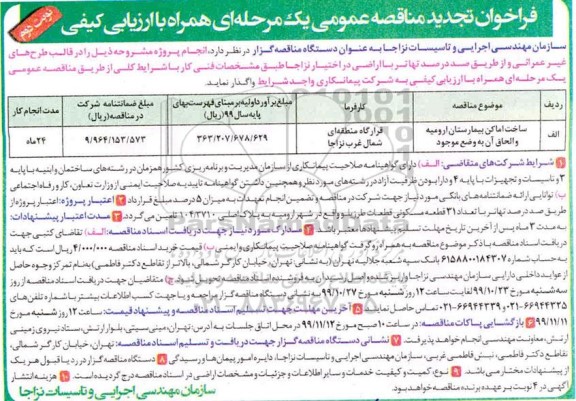 نوبت دوم
فراخوان تجدید مناقصه عمومی یک مرحله‌ای همراه با ارزیابی کیفی
سازمان مهندسی اجرایی و تاسیسات نزاجا به عنوان دستگاه مناقصه‌گزار در نظر دارد، انجام پروژه مشروحه ذیل را در قالب طرح‌های
غیر عمرانی و از طریق صد درصد تهاتر با اراضی در اختیار نزاجا طبق مشخصات فنی کار با شرایط کلی از طریق مناقصه عمومی
یک مرحله‌ای همراه با ارزیابی کیفی به شرکت پیمانکاری واجد شرایط واگذار نماید.
ردیف موضوع مناقصه کارفرما مبلغ برآورد اولیه بر مبنای فهرست‌بهای پایه سال ۹۹ (ریال) مبلغ ضمانتنامه شرکت در مناقصه (ریال) مدت انجام کار
الف ساخت اماکن بیمارستان ارومیه والحاق آن به وضع موجود قرارگاه منطقه‌ای شمال غرب نزاجا ۳۶۳/۲۰۷/۶۷۸/۶۲۹ ۹/۹۶۴/۱۵۳/۵۷۳ ۲۴ماه
۱ شرایط شرکت‌های متقاضی: الف) دارای گواهینامه صلاحیت پیمانکاری از سازمان مدیریت و برنامه‌ریزی کشور همزمان در رشته‌های ساختمان و ابنیه با پایه
۳ و تاسیسات و تجهیزات با پایه ۴ و دارا بودن ظرفیت آزاد در رشته‌های مورد نظر و همچنین داشتن گواهینامه تایید صلاحیت ایمنی از وزارت تعاون، کار و رفاه اجتماعی
ب) توانایی ارائه ضمانتنامه‌های بانکی مورد نیاز جهت شرکت در مناقصه و تضمین انجام تعهدات به میزان ۵ درصد مبلغ قرارداد ۲ اعتبار پروژه: اعتبار پروژه از
طریق صد درصد تهاتر با تعداد ۳۱ قطعه مسکونی قطعات
به مدت ۳ ماه پس از آخرین تاریخ مهلت تسلیم پیشنهادات می‌باشد. ۴ مدارک مورد نیاز جهت دریافت اسناد مناقصه: الف) تقاضای کتبی جهت
دریافت اسناد مناقصه با ذکر موضوع مناقصه به همراه رو گرفت گواهینامه صلاحیت پیمانکاری و ایمنی ب) قیمت خرید اسناد مناقصه ۴/۰۰۰/۰۰۰ ریال است که باید
به حساب شماره ۶۱۵۸۸۰۰۱۸۴۳۰۷ بانک سپه شعبه جلالیه تهران (به نشانی تهران، خیابان کارگر شمالی، بالاتر از تقاطع دکتر فاطمی) به‌نام تمرکز وجوه حاصل
از عواید داخلی دارایی سازمان مهندسی نزاجا واریز
سه‌شنبه مورخ ۹۹/۱۰/۲۳ لغایت ساعت ۱۲ روز شنبه مورخ ۹۹/۱۰/۲۷ به نشانی دستگاه مناقصه‌گزار مراجعه و یا جهت کسب اطلاعات بیشتر با شماره تلفن‌های
۶۶۹۴۴۳۲۵-۰۲۱ و ۶۶۹۴۴۳۳۹-۰۲۱ تماس حاصل نمایند ۵ آخرین مهلت جهت تسلیم اسناد مناقصه و پیشنهاد قیمت: ساعت ۱۲ روز شنبه مورخ
۹۹/۱۱/۱۱ ۶ بازگشایی پاکات مناقصه: در ساعت ۱۰ صبح مورخ ۹۹/۱۱/۱۲ در محل اتاق جلسات به آدرس: تهران، مینی‌سیتی، بلوار ارتش، ستاد نیروی زمینی
ارتش، معاونت مهندسی انجام خواهد پذیرفت. ۷ نشانی دستگاه مناقصه گزار جهت دریافت و تسلیم اسناد مناقصه: تهران، خیابان کارگر شمالی
تقاطع دکتر فاطمی، نبش فاطمی غربی، سازمان مهندسی اجرایی و تاسیسات نزاجا، دایره امور پیمان‌ها و رسیدگی ۸ دستگاه مناقصه گزار در رد یا قبول هر یک
از پیشنهادات مختار می‌باشد. ۹ نوع، کمیت و کیفیت خدمات و سایر اطلاعات و جزئیات و مشخصات اراضی در اسناد مناقصه درج گردیده است. ۱۰ هزینه انتشار
آگهی در ۴ نوبت بر عهده برنده مناقصه خواهد بود.
سازمان مهندسی اجرایی و تاسیسات نزاجا